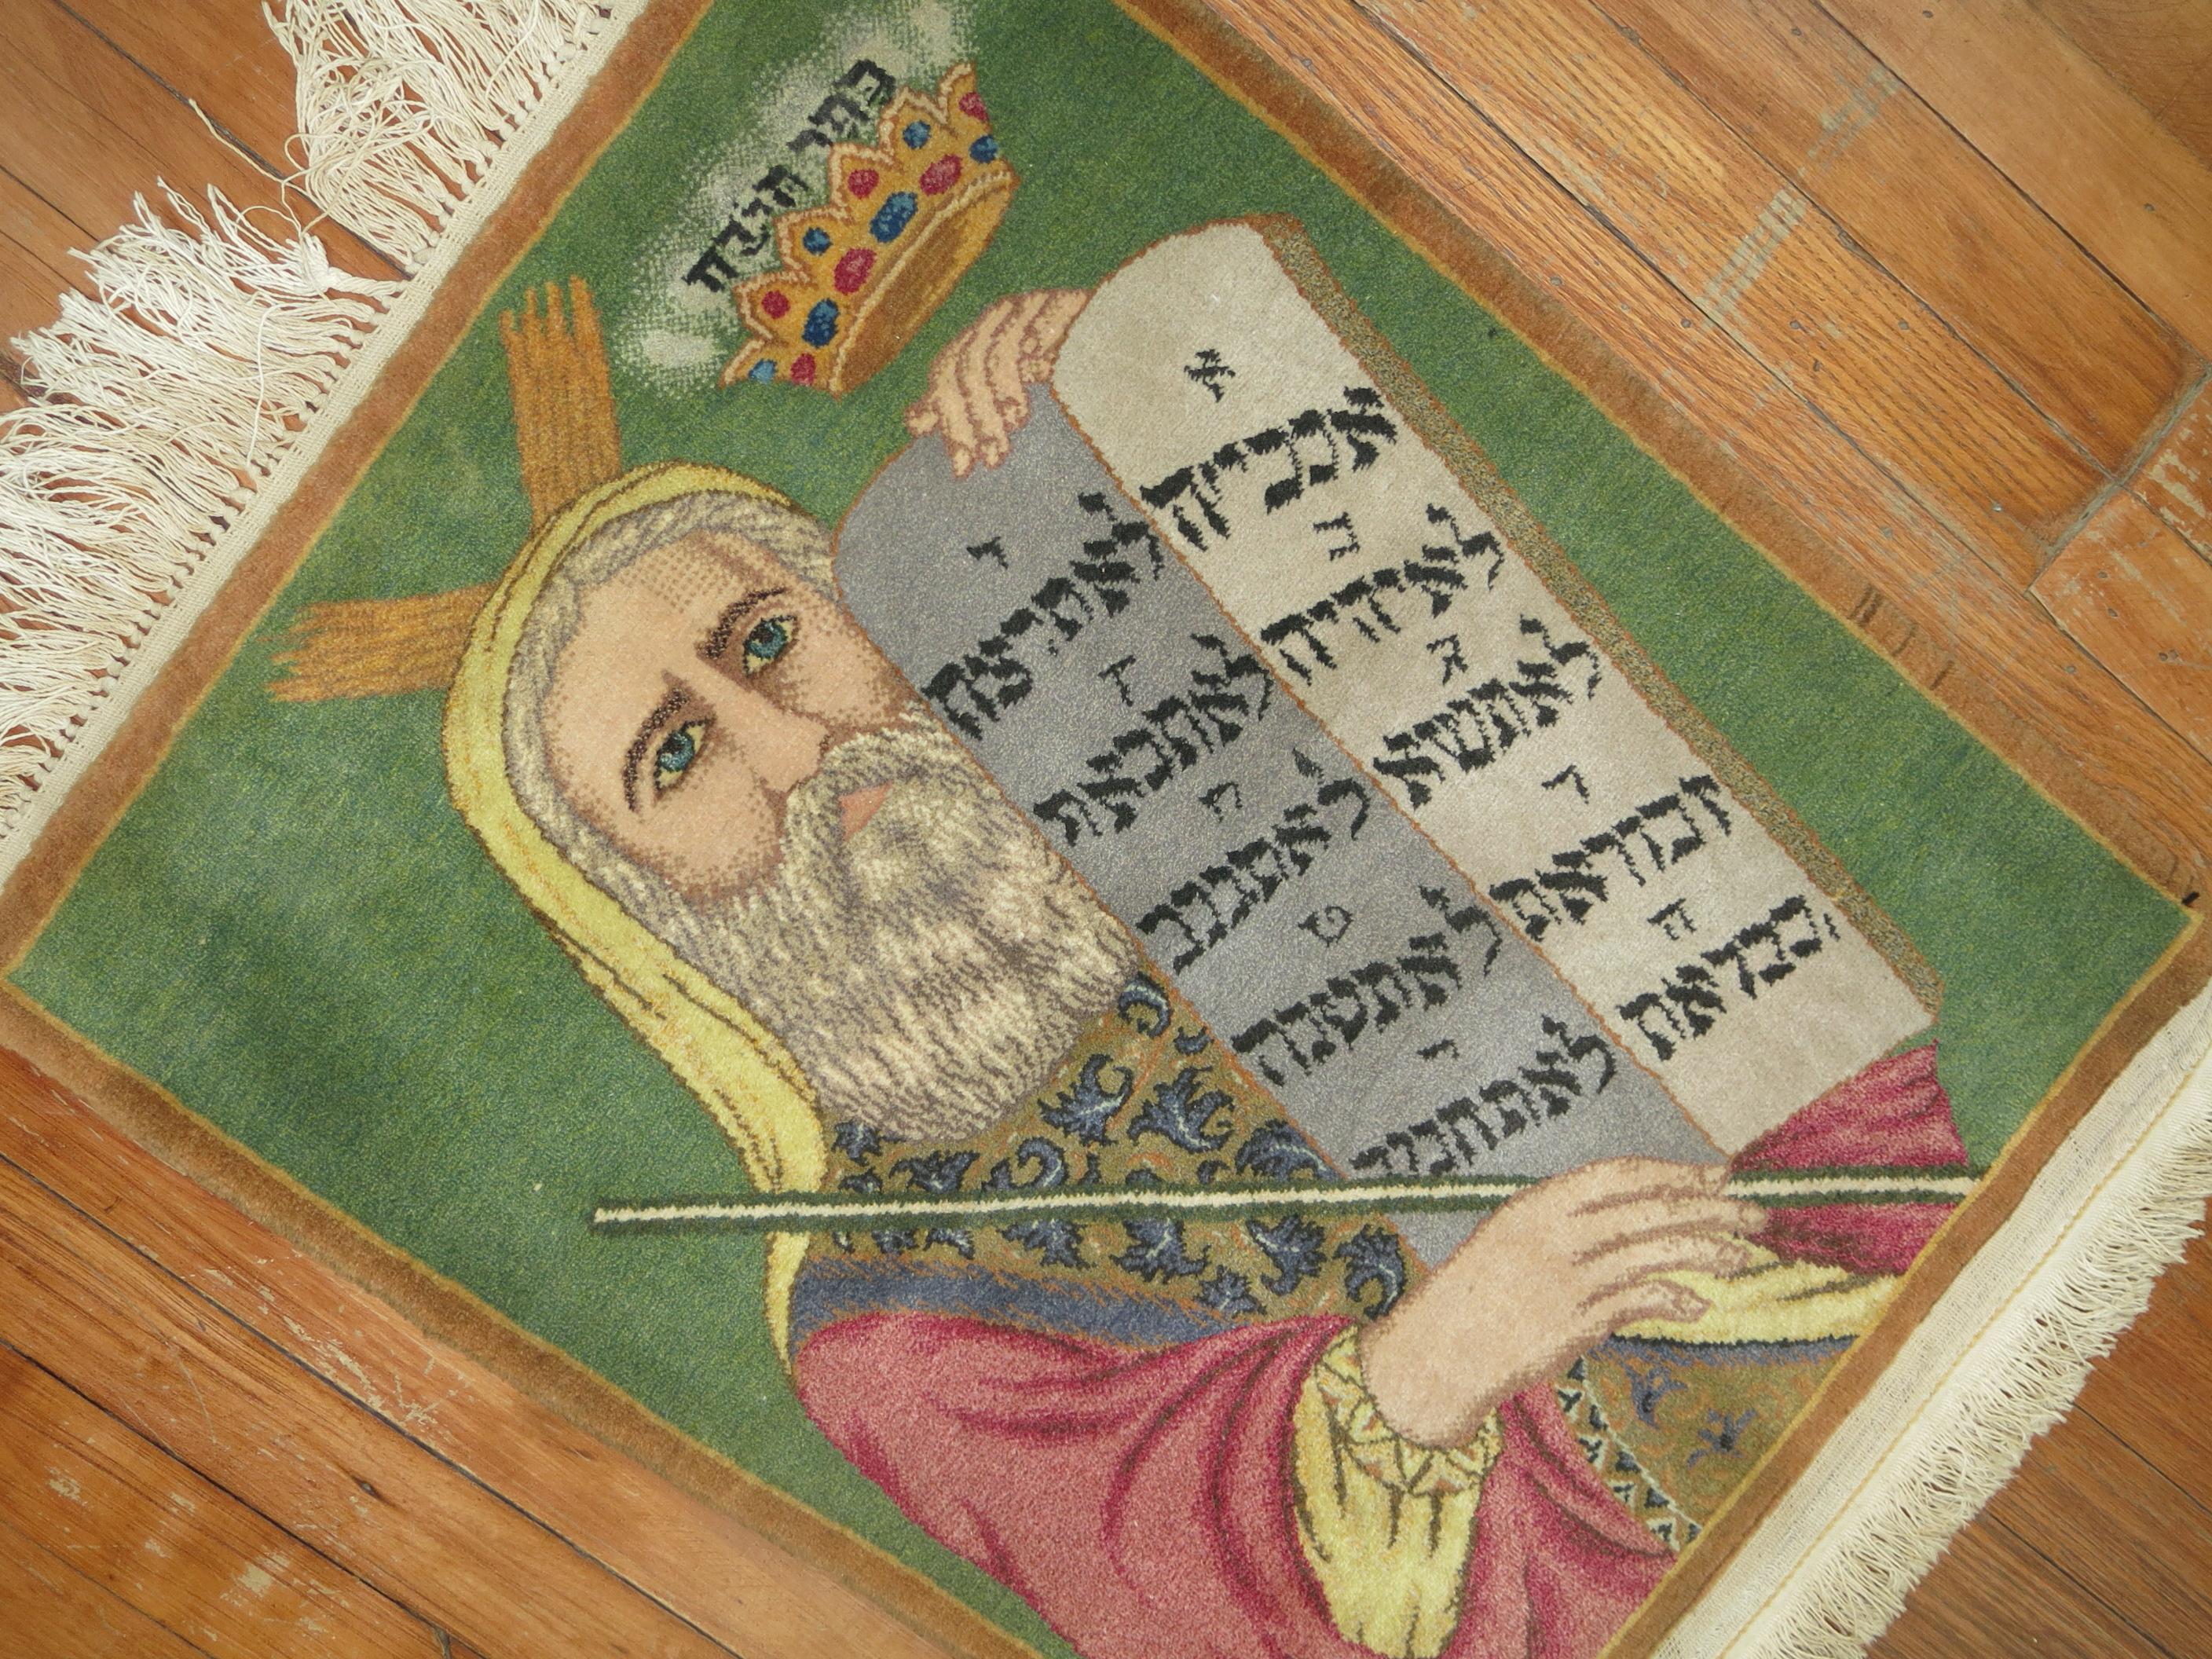 כתר תורה
א
אנכי יק
ב
לא יהיה
ג
לא תשא
ד
זכור את
ה
כבד את
ו
לא תרצח
ז
ח
לא תגנב
ט
לא תענה
י